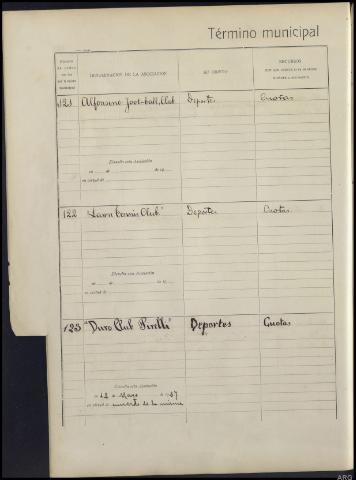 Término municipal
DENOMINACIÓN DE LA ASOCIACIÓN
SU OBJETO
RECURSOS
121 Alfonsino foot-ball, Club Deportes Cuotas
Disuelta esta Asociación
en de de 19
en virtud de
122 "Lawn Tennis Club" Deportes Cuotas
Disuelta esta Asociación
en de de 19
en virtud de
123 "Duro Club Pirelli" Deportes Cuotas
Disuelta esta Asociación
en 12 de Mayo de 1937
en virtud de acuerdo de la misma
ARG